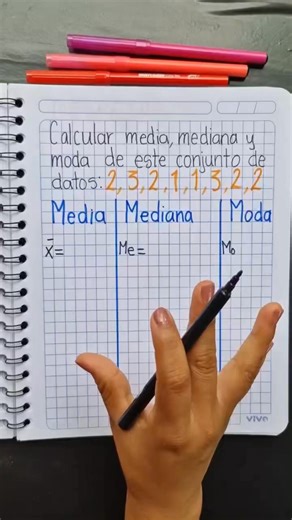 Calcular media, mediana y
moda de este conjunto de
datos: 2, 3, 2, 1, 1, 3, 2, 2
Media Mediana Moda
x̄= Me= Mo
vive